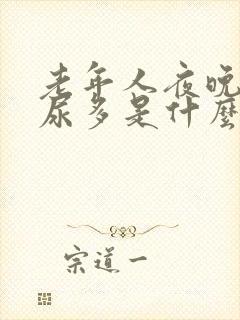 老年人夜晚
尿多是什麼
宗道一